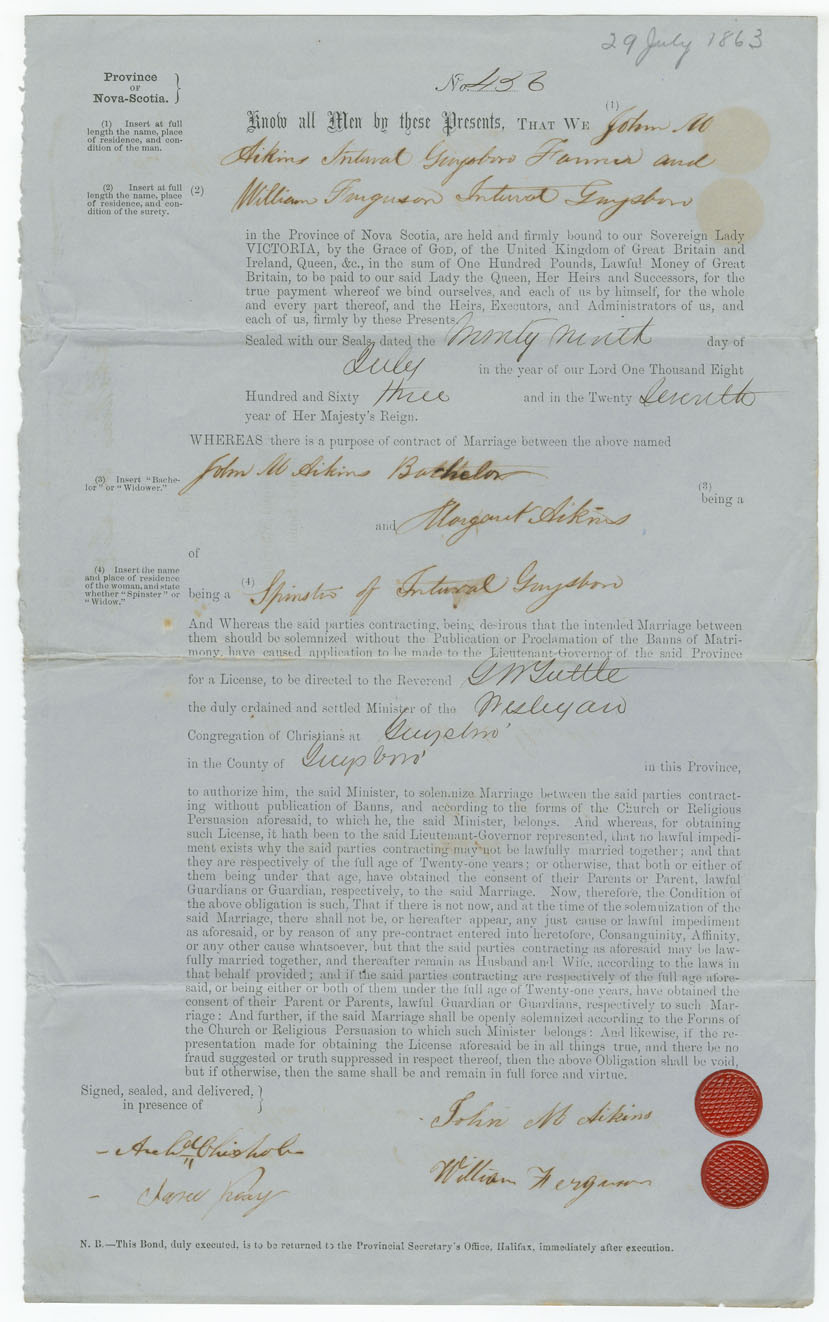 29 July 1863
Province
OF
Nova-Scotia.
No. 436
(1) Insert at full
length the name, place
of residence, and con-
dition of the man.
(1)
Know all Men by these Presents, THAT WE John M
Aikins Interval Guysboro Farmer and
(2) Insert at full
length the name, place
of residence, and con-
dition of the surety.
(2)
William Ferguson Interval Guysboro
in the Province of Nova Scotia, are held and firmly bound to our Sovereign Lady
VICTORIA, by the Grace of GOD, of the United Kingdom of Great Britain and
Ireland, Queen, &c., in the sum of One Hundred Pounds, Lawful Money of Great
Britain, to be paid to our said Lady the Queen, Her Heirs and Successors, for the
true payment whereof we bind ourselves, and each of us by himself, for the whole
and every part thereof, and the Heirs, Executors, and Administrators of us, and
each of us, firmly by these Presents.
Sealed with our Seals, dated the twenty ninth day of
July in the year of our Lord One Thousand Eight
Hundred and Sixty three and in the Twenty Seventh
year of Her Majesty's Reign.
WHEREAS there is a purpose of contract of Marriage between the above named
(3) Insert "Bache-
lor" or "Widower."
John M Aikins Bachelor
(3)
being a
and Margaret Aikins
of
(4) Insert the name
and place of residence
of the woman, and state
whether "Spinster" or
"Widow."
being a (4) Spinster of Interval Guysboro
And Whereas the said parties contracting, being desirous that the intended Marriage between
them should be solemnized without the Publication or Proclamation of the Banns of Matri-
mony, have caused application to be made to the Lieutenant-Governor of the said Province
for a License, to be directed to the Reverend G W Tuttle
the duly ordained and settled Minister of the Wesleyan
Congregation of Christians at Guysboro'
in the County of Guysboro' in this Province,
to authorize him, the said Minister, to solemnize Marriage between the said parties contract-
ing without publication of Banns, and according to the forms of the Church or Religious
Persuasion aforesaid, to which he, the said Minister, belongs. And whereas, for obtaining
such License, it hath been to the said Lieutenant-Governor represented, that no lawful impedi-
ment exists why the said parties contracting may not be lawfully married together; and that
they are respectively of the full age of Twenty-one years; or otherwise, that both or either of
them being under that age, have obtained the consent of their Parents or Parent, lawful
Guardians or Guardian, respectively, to the said Marriage. Now, therefore, the Condition of
the above obligation is such, That if there is not now, and at the time of the solemnization of the
said Marriage, there shall not be, or hereafter appear, any just cause or lawful impediment
as aforesaid, or by reason of any pre-contract entered into heretofore, Consanguinity, Affinity,
or any other cause whatsoever, but that the said parties contracting as aforesaid may be law-
fully married together, and thereafter remain as Husband and Wife, according to the laws in
that behalf provided; and if the said parties contracting are respectively of the full age afore-
said, or being either or both of them under the full age of Twenty-one years, have obtained the
consent of their Parent or Parents, lawful Guardian or Guardians, respectively to such Mar-
riage: And further, if the said Marriage shall be openly solemnized according to the Forms of
the Church or Religious Persuasion to which such Minister belongs: And likewise, if the re-
presentation made for obtaining the License aforesaid be in all things true, and there be no
fraud suggested or truth suppressed in respect thereof, then the above Obligation shall be void,
but if otherwise, then the same shall be and remain in full force and virtue.
Signed, sealed, and delivered,
in presence of
John M Aikins
Archd Chisholm
William Ferguson
N. B.—This Bond, duly executed, is to be returned to the Provincial Secretary's Office, Halifax, immediately after execution.